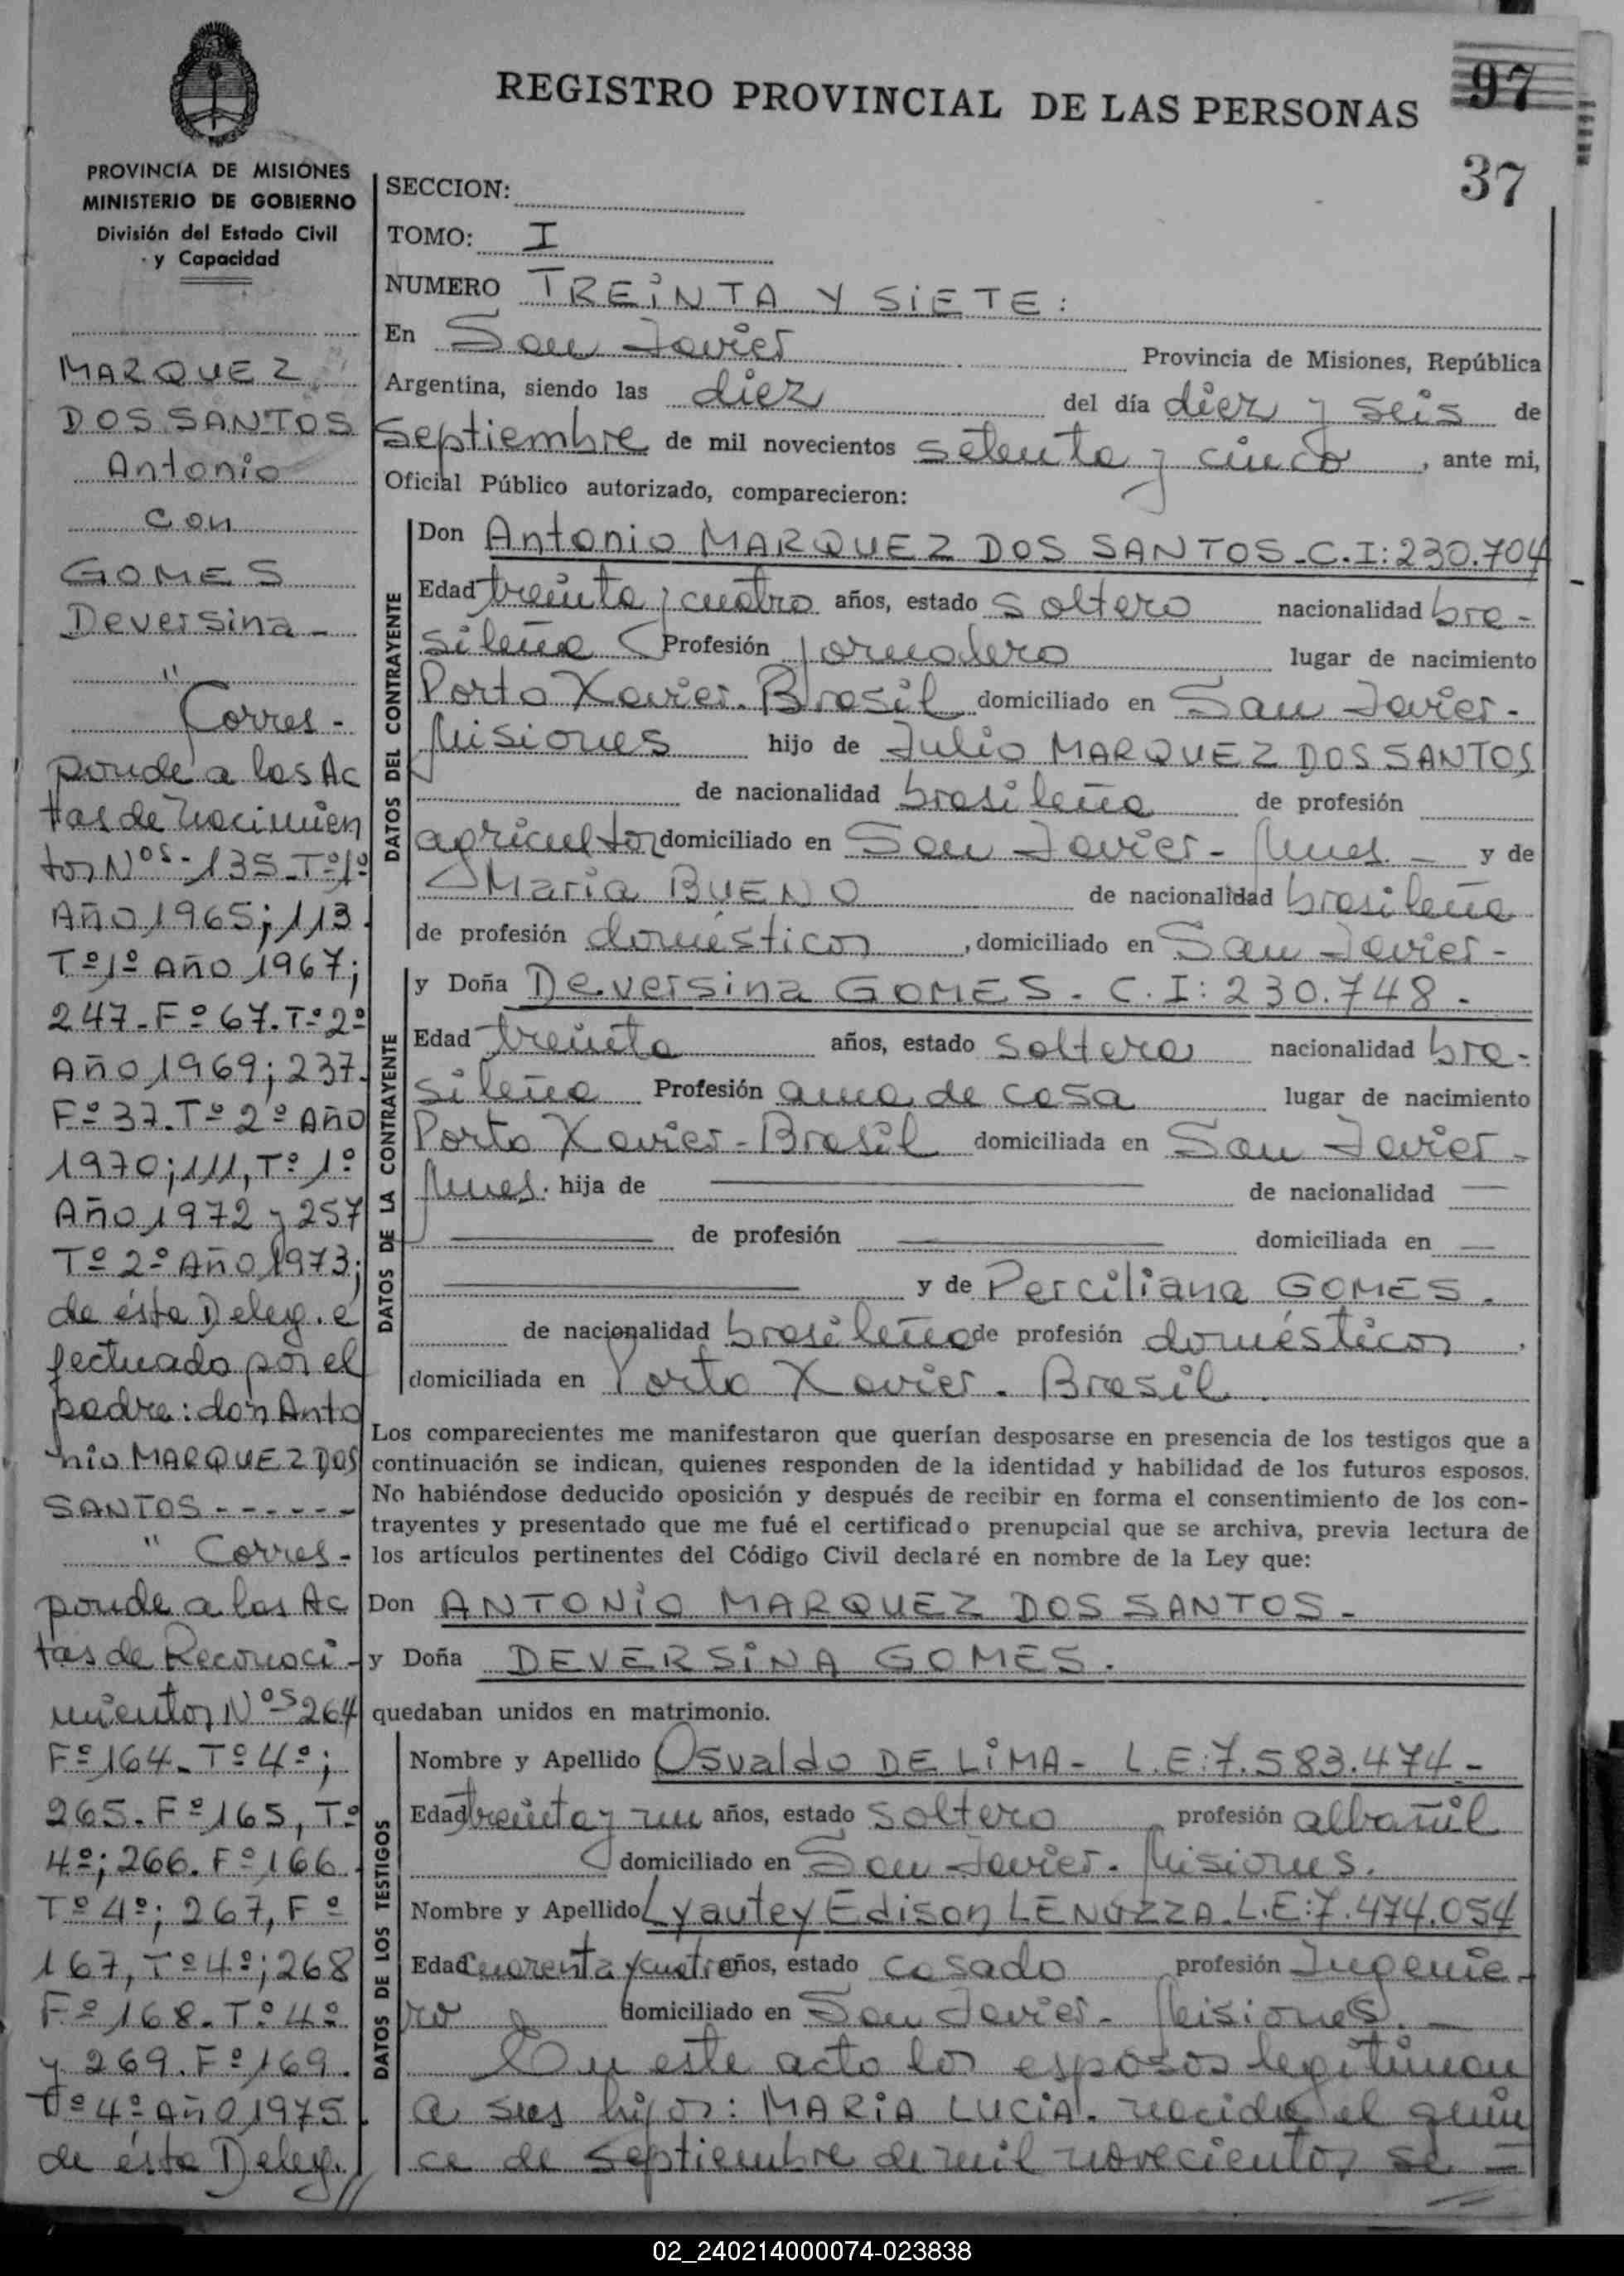 REGISTRO PROVINCIAL DE LAS PERSONAS
97
37
PROVINCIA DE MISIONES
MINISTERIO DE GOBIERNO
División del Estado Civil
y Capacidad
MARQUEZ
DOS SANTOS
Antonio
con
GOMES
Deversina -
"
Corres-
ponde a las Ac
tas de nacimien
tos Nos- 135-Tº1º
Año 1965; 113.
Tº1º Año 1967;
247-Fº67.Tº2º
Año 1969; 237.
Fº37.Tº 2º Año
1970; 111, Tº 1º
Año 1972 y 257
Tº 2º Año 1973;
de ésta Deleg. e
fectuado por el
padre: don Anto
nio MARQUEZ DOS
SANTOS - - - - - -
" Corres-
ponde a las Ac
tas de Reconoci-
mientos Nos 264
Fº164-Tº4º;
265-Fº165, Tº
4º; 266.Fº166.
Tº4º; 267, Fº
167, Tº4º; 268
Fº168.Tº4º
y 269.Fº169.
Tº4º Año 1975.
de ésta Deleg. //
SECCION:
TOMO: I
NUMERO TREiNTA Y SiETE:
En San Javier Provincia de Misiones, República
Argentina, siendo las diez del día diez y seis de
septiembre de mil novecientos setenta y cinco, ante mi,
Oficial Público autorizado, comparecieron:
DATOS DEL CONTRAYENTE
Don Antonio MARQUEZ DOS SANTOS-C.I:230.704
Edad treinta y cuatro años, estado soltero nacionalidad bra-
sileña Profesión jornalero lugar de nacimiento
Porto Xavier. Brasil domiciliado en San Javier-
Misiones hijo de Julio MARQUEZ DOS SANTOS
de nacionalidad brasileña de profesión
agricultor domiciliado en San Javier- Mnes. - y de
Maria BUENO de nacionalidad brasileña
de profesión domésticos, domiciliado en San Javier-
DATOS DE LA CONTRAYENTE
y Doña Deversina GOMES. C.I: 230.748.
Edad treinta años, estado soltera nacionalidad bra-
sileña Profesión ama de casa lugar de nacimiento
Porto Xavier-Brasil domiciliada en San Javier-
Mnes. hija de de nacionalidad
de profesión domiciliada en
y de Perciliana GOMES.
de nacionalidad brasileña de profesión domésticos,
domiciliada en Porto Xavier. Brasil.
Los comparecientes me manifestaron que querían desposarse en presencia de los testigos que a
continuación se indican, quienes responden de la identidad y habilidad de los futuros esposos.
No habiéndose deducido oposición y después de recibir en forma el consentimiento de los con-
trayentes y presentado que me fué el certificado prenupcial que se archiva, previa lectura de
los artículos pertinentes del Código Civil declaré en nombre de la Ley que:
Don ANTONiO MARQUEZ DOS SANTOS-
y Doña DEVERSiNA GOMES.
quedaban unidos en matrimonio.
DATOS DE LOS TESTIGOS
Nombre y Apellido Osvaldo DE LiMA- L.E:7.583.474-
Edad treinta y un años, estado soltero profesión albañil
domiciliado en San Javier. Misiones.
Nombre y Apellido Lyautey Edison LENUZZA.L.E:7.474.054
Edad cuarenta y cuatro años, estado casado profesión Ingenie-
ro domiciliado en San Javier- Misiones.-
En este acto los esposos legitiman
a sus hijos: MARiA LUCiA. nacida el quin
ce de septiembre de mil novecientos se-
02_240214000074-023838